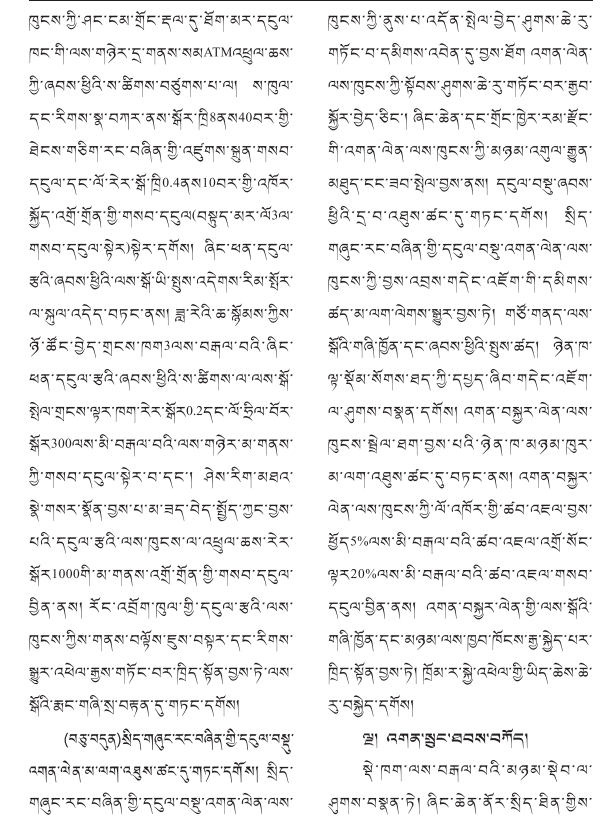 ཁུངས་ཀྱི་ཤང་ངམ་གྲོང་རྡལ་དུ་ཐོག་མར་དངུལ་
ཁང་གི་ལས་གཉེར་དྲ་གནས་སམATMའཕྲུལ་ཆས་
ཀྱི་ཞབས་ཕྱིའི་ས་ཚིགས་བཙུགས་པ་ལ། ས་ཁུལ་
དང་རིགས་སྣ་བཀར་ནས་སྒོར་ཁྲི8ནས40བར་གྱི་
ཐེངས་གཅིག་རང་བཞིན་གྱི་འཛུགས་སྐྲུན་གསབ་
དངུལ་དང་ལོ་རེར་སྒོ་ཁྲི0.4ནས10བར་གྱི་འཁོར་
སྐྱོད་འགྲོ་གྲོན་གྱི་གསབ་དངུལ(བསྟུད་མར་ལོ3ལ་
གསབ་དངུལ་སྟེར)སྟེར་དགོས། ཞིང་ཕན་དངུལ་
རྩའི་ཞབས་ཕྱིའི་ལས་སྒོ་ཡི་སྤུས་འདེགས་རིམ་སྤོར་
ལ་སྐུལ་འདེད་བཏང་ནས། ཟླ་རེའི་ཆ་སྙོམས་ཀྱིས་
ཉོ་ཚོང་བྱེད་གྲངས་ཁག3ལས་བརྒལ་བའི་ཞིང་
ཕན་དངུལ་རྩའི་ཞབས་ཕྱིའི་ས་ཚིགས་ལ་ལས་སྒོ་
སྤེལ་གྲངས་ལྟར་ཁག་རེར་སྒོར0.2དང་ལོ་ཧྲིལ་བོར་
སྒོར300ལས་མི་བརྒལ་བའི་ལས་གཉེར་མ་གནས་
ཀྱི་གསབ་དངུལ་སྟེར་བ་དང་། ཤེས་རིག་མཐའ་
སྣེ་གསར་སྣོན་བྱས་པ་མ་ཟད་བེད་སྤྱོད་ཀྱང་བྱས་
པའི་དངུལ་རྩའི་ལས་ཁུངས་ལ་འཕྲུལ་ཆས་རེར་
སྒོར1000གི་མ་གནས་འགྲོ་གྲོན་གྱི་གསབ་དངུལ་
བྱིན་ནས། རོང་འབྲོག་ཁུལ་གྱི་དངུལ་རྩའི་ལས་
ཁུངས་ཀྱིས་གནས་བལྟོས་ཇུས་བསྟར་དང་རིགས་
སྒྱུར་འཕེལ་རྒྱས་གཏོང་བར་ཁྲིད་སྟོན་བྱས་ཏེ་ལས་
སྒོའི་རྨང་གཞི་སྲ་བརྟན་དུ་གཏང་དགོས།
(བཅུ་བདུན)སྲིད་གཞུང་རང་བཞིན་གྱི་དངུལ་བསྡུ་
འགན་ལེན་མ་ལག་འཐུས་ཚང་དུ་གཏང་དགོས། སྲིད་
གཞུང་རང་བཞིན་གྱི་དངུལ་བསྡུ་འགན་ལེན་ལས་
ཁུངས་ཀྱི་ནུས་པ་འདོན་སྤེལ་བྱེད་ཤུགས་ཆེ་རུ་
གཏོང་བ་དམིགས་འབེན་དུ་བྱས་ཐོག འགན་ལེན་
ལས་ཁུངས་ཀྱི་སྟོབས་ཤུགས་ཆེ་རུ་གཏོང་བར་རྒྱབ་
སྐྱོར་བྱེད་ཅིང་། ཞིང་ཆེན་དང་གྲོང་ཁྱེར་རམ་རྫོང་
གི་འགན་ལེན་ལས་ཁུངས་ཀྱི་མཉམ་འགུལ་རྒྱུན་
མཐུད་ངང་ཟབ་སྤེལ་བྱས་ནས། དངུལ་བསྡུ་ཞབས་
ཕྱིའི་དྲ་བ་འཐུས་ཚང་དུ་གཏང་དགོས། སྲིད་
གཞུང་རང་བཞིན་གྱི་དངུལ་བསྡུ་འགན་ལེན་ལས་
ཁུངས་ཀྱི་བྱས་འབྲས་གདེང་འཇོག་གི་དམིགས་
ཚད་མ་ལག་ལེགས་སྒྱུར་བྱས་ཏེ། གཙོ་གནད་ལས་
སྒོའི་གཞི་ཁྱོན་དང་ཞབས་ཕྱིའི་སྤུས་ཚད། ཉེན་ཁ་
ལྟ་སྡོམ་སོགས་ཐད་ཀྱི་དཔྱད་ཞིབ་གདེང་འཇོག་
ལ་ཤུགས་བསྣན་དགོས། འགན་བསྐྱར་ལེན་ལས་
ཁུངས་སྦྲེལ་ཐག་བྱས་པའི་ཉེན་ཁ་མཉམ་ཁུར་
མ་ལག་འཐུས་ཚང་དུ་བཏང་ནས། འགན་བསྐྱར་
ལེན་ལས་ཁུངས་ཀྱི་ལོ་འཁོར་གྱི་ཚབ་འཇལ་བྱས་
ཕྱོད5%ལས་མི་བརྒལ་བའི་ཚབ་འཇལ་འགྲོ་སོང་
ལྟར20%ལས་མི་བརྒལ་བའི་ཚབ་འཇལ་གསབ་
དངུལ་བྱིན་ནས། འགན་བསྐྱར་ལེན་གྱི་ལས་སྒོའི་
གཞི་ཁྱོན་དང་མཉམ་ལས་ཁྱབ་ཁོངས་རྒྱ་སྐྱེད་པར་
ཁྲིད་སྟོན་བྱས་ཏེ། ཁྲོམ་ར་སྐྱེ་འཕེལ་གྱི་ཡིད་ཆེས་ཆེ་
རུ་བསྐྱེད་དགོས།
ལྔ། འགན་སྲུང་ཐབས་བཀོད།
སྡེ་ཁག་ལས་བརྒལ་བའི་མཉམ་སྡེབ་ལ་
ཤུགས་བསྣན་ཏེ། ཞིང་ཆེན་ནོར་སྲིད་ཐིན་གྱིས་